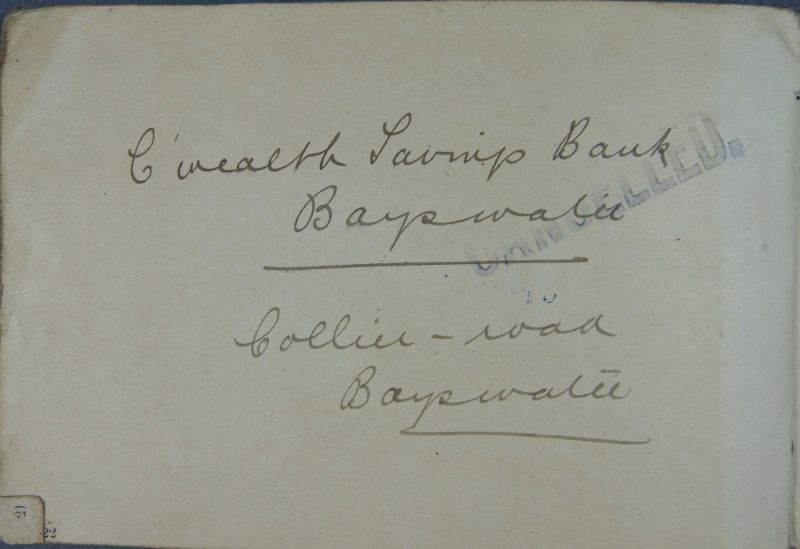 C'wealth Savings Bank
Bayswater
CANCELLED.
Collier - road
Bayswater
22